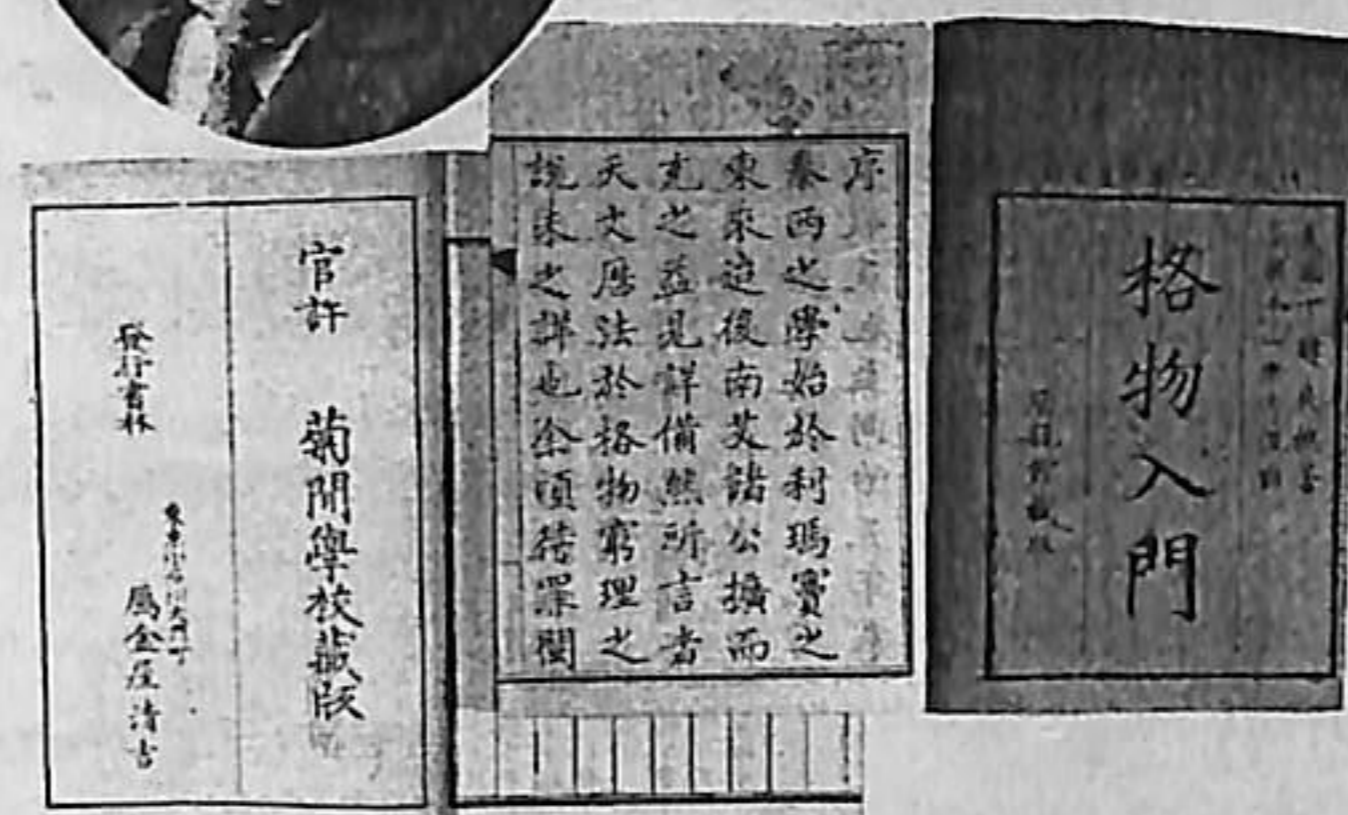 格物入門
序
泰西之學始於利瑪竇之
東來迨後南艾諸公擴而
充之益見詳備然所言者
天文厯法於格物窮理之
說未之詳也余頃待罪閩
官許 菊間學校藏版
發行書林
鴈金屋清吉